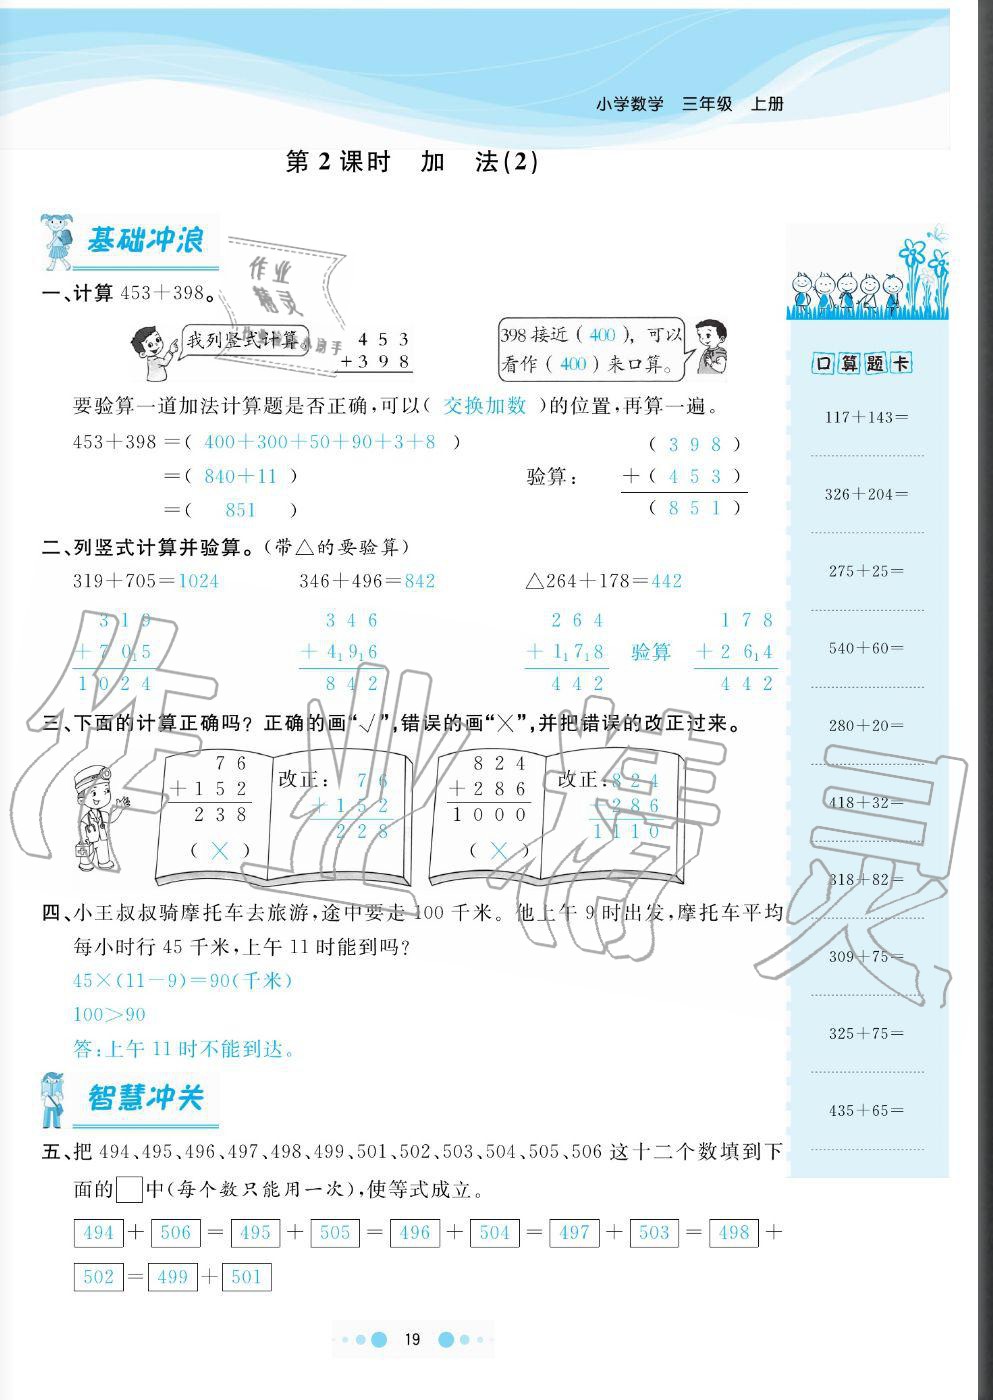 小学数学 三年级 上册
第2课时 加 法(2)
基础冲浪
作业
精灵
一、计算 453+398。
我列竖式计算。
4 5 3
+3 9 8
398接近(400),可以
看作(400)来口算。
要验算一道加法计算题是否正确,可以( 交换加数 )的位置,再算一遍。
453+398 =( 400+300+50+90+3+8 )
=( 840+11 )
=( 851 )
验算:
( 3 9 8 )
+( 4 5 3 )
( 8 5 1 )
二、列竖式计算并验算。(带△的要验算)
319+705=1024 346+496=842 △264+178=442
3 1 9 3 4 6 2 6 4 1 7 8
+ 7 0₁5 + 4₁9₁6 + 1₁7₁8 验算 + 2 6₁4
1 0 2 4 8 4 2 4 4 2 4 4 2
三、下面的计算正确吗?正确的画“√”,错误的画“×”,并把错误的改正过来。
7 6
+1 5 2
2 3 8
( × )
改正: 7 6
+ 1 5 2
2 2 8
8 2 4
+ 2 8 6
1 0 0 0
( × )
改正:8 2 4
+ 2 8 6
1 1 1 0
四、小王叔叔骑摩托车去旅游,途中要走100千米。他上午9时出发,摩托车平均
每小时行45千米,上午11时能到吗?
45×(11-9)=90(千米)
100>90
答:上午11时不能到达。
智慧冲关
五、把494、495、496、497、498、499、501、502、503、504、505、506这十二个数填到下
面的□中(每个数只能用一次),使等式成立。
494 + 506 = 495 + 505 = 496 + 504 = 497 + 503 = 498 +
502 = 499 + 501
口算题卡
117+143=
326+204=
275+25=
540+60=
280+20=
418+32=
318+82=
309+75=
325+75=
435+65=
19
作业精灵